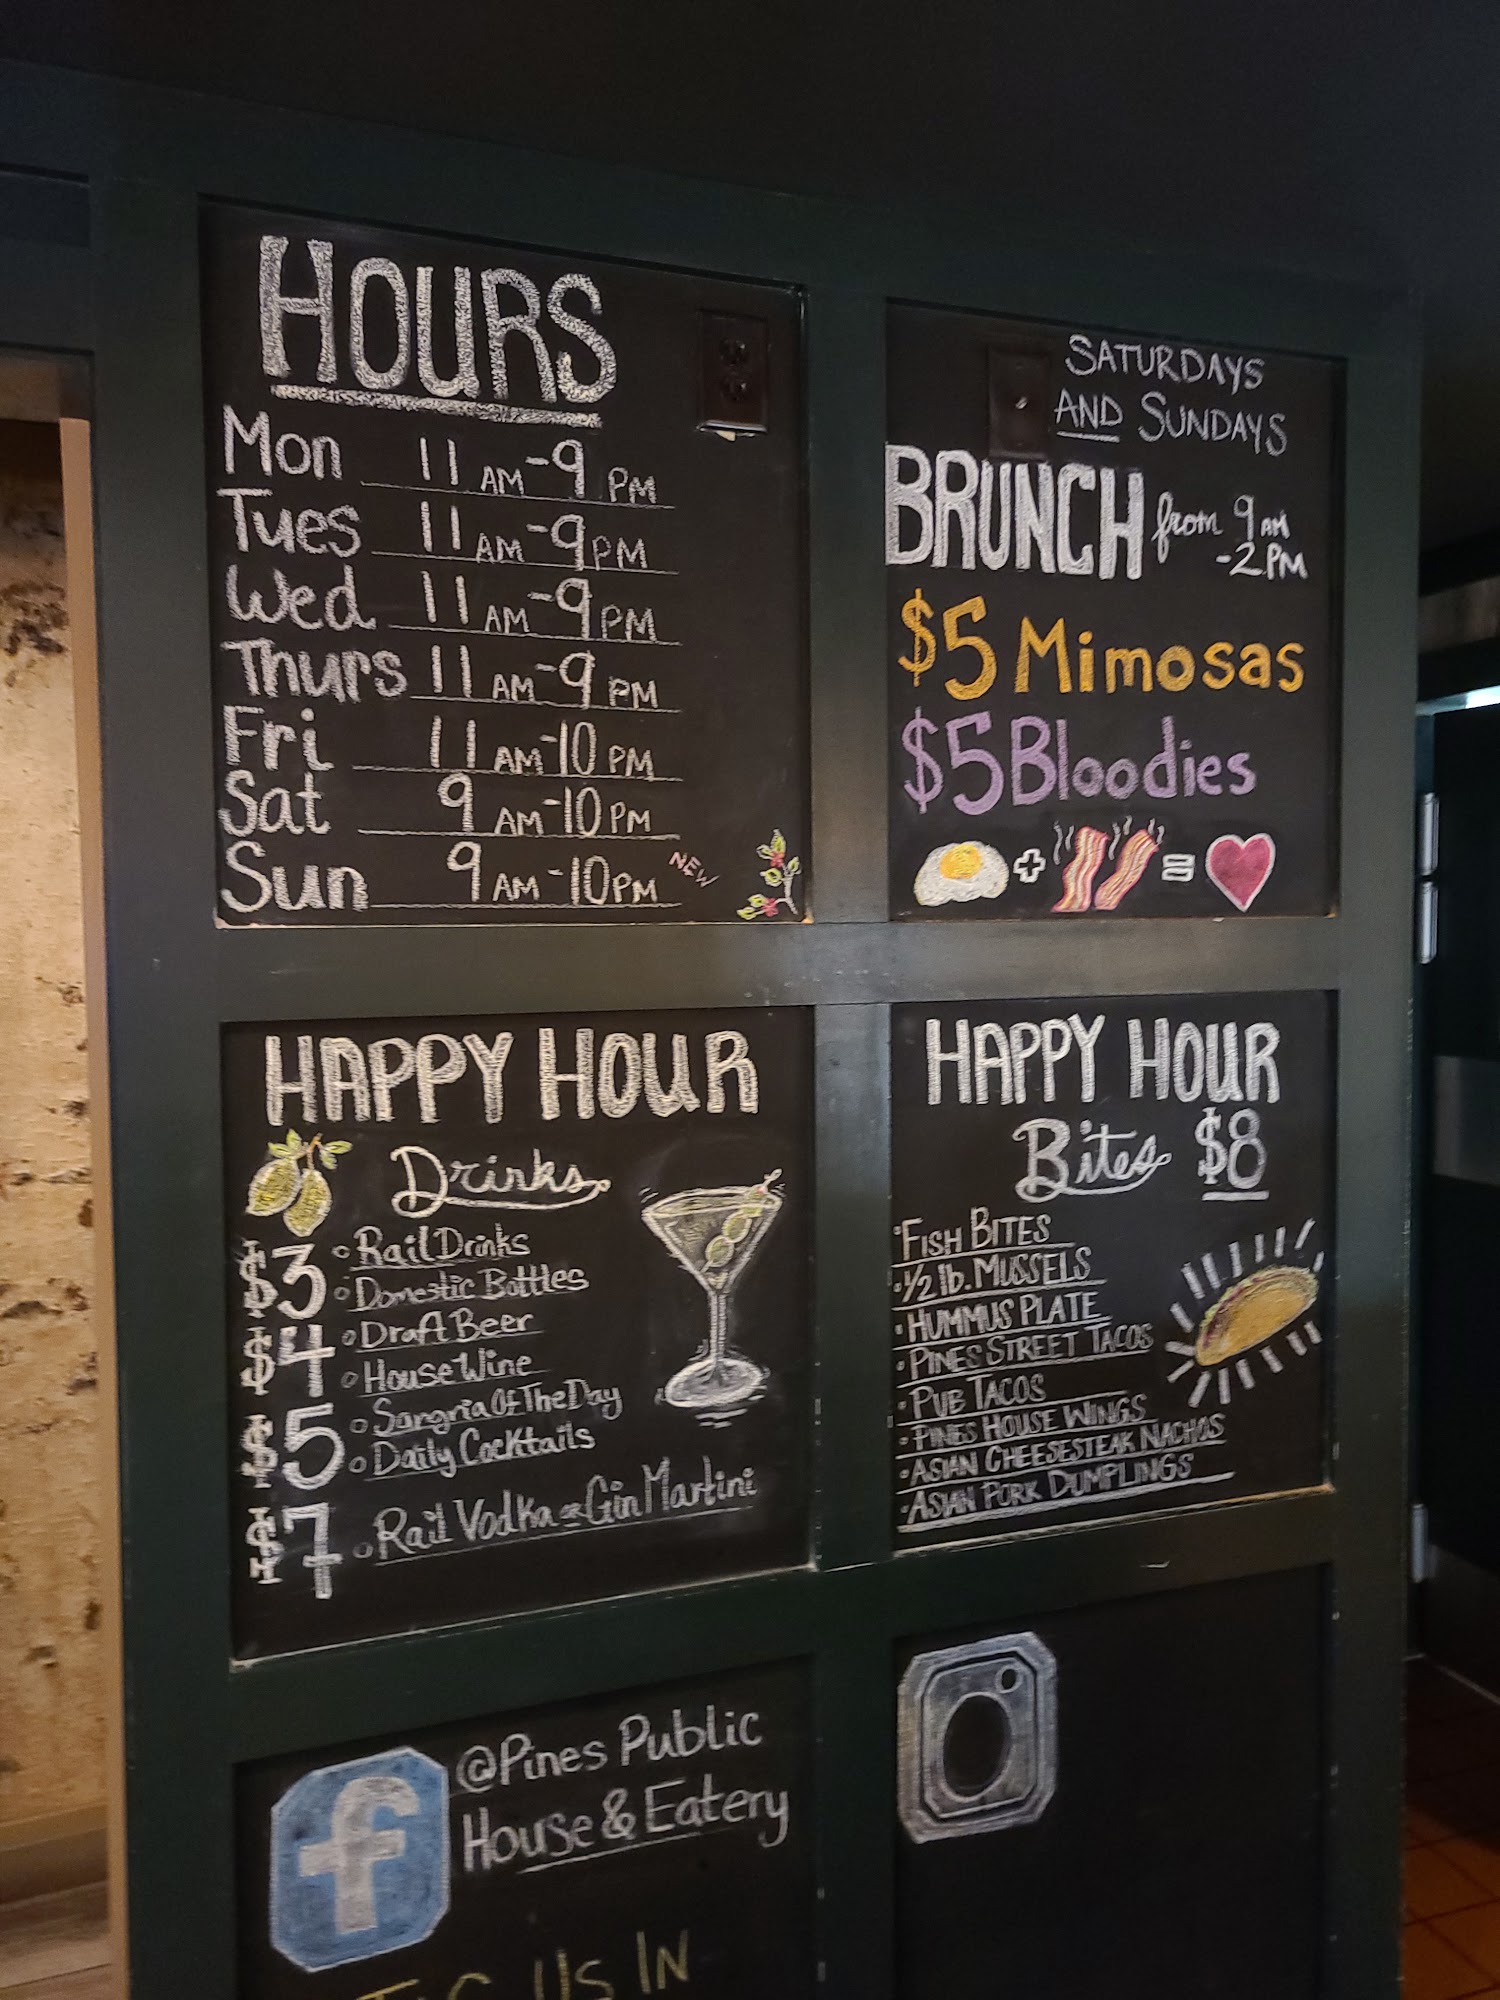 HOURS
Mon 11 AM - 9 PM
Tues 11 AM - 9 PM
Wed 11 AM - 9 PM
Thurs 11 AM - 9 PM
Fri 11 AM - 10 PM
Sat 9 AM - 10 PM
Sun 9 AM - 10 PM NEW
SATURDAYS
AND SUNDAYS
BRUNCH from 9 AM
- 2 PM
$5 Mimosas
$5 Bloodies
+ =
HAPPY HOUR
Drinks
$3 Rail Drinks
Domestic Bottles
$4 Draft Beer
House Wine
$5 Sangria Of The Day
Daily Cocktails
$7 Rail Vodka or Gin Martini
HAPPY HOUR
Bites $8
• FISH BITES
• 1/2 lb. MUSSELS
• HUMMUS PLATE
• PINES STREET TACOS
• PUB TACOS
• PINES HOUSE WINGS
• ASIAN CHEESESTEAK NACHOS
• ASIAN PORK DUMPLINGS
f
@Pines Public
House & Eatery
US IN